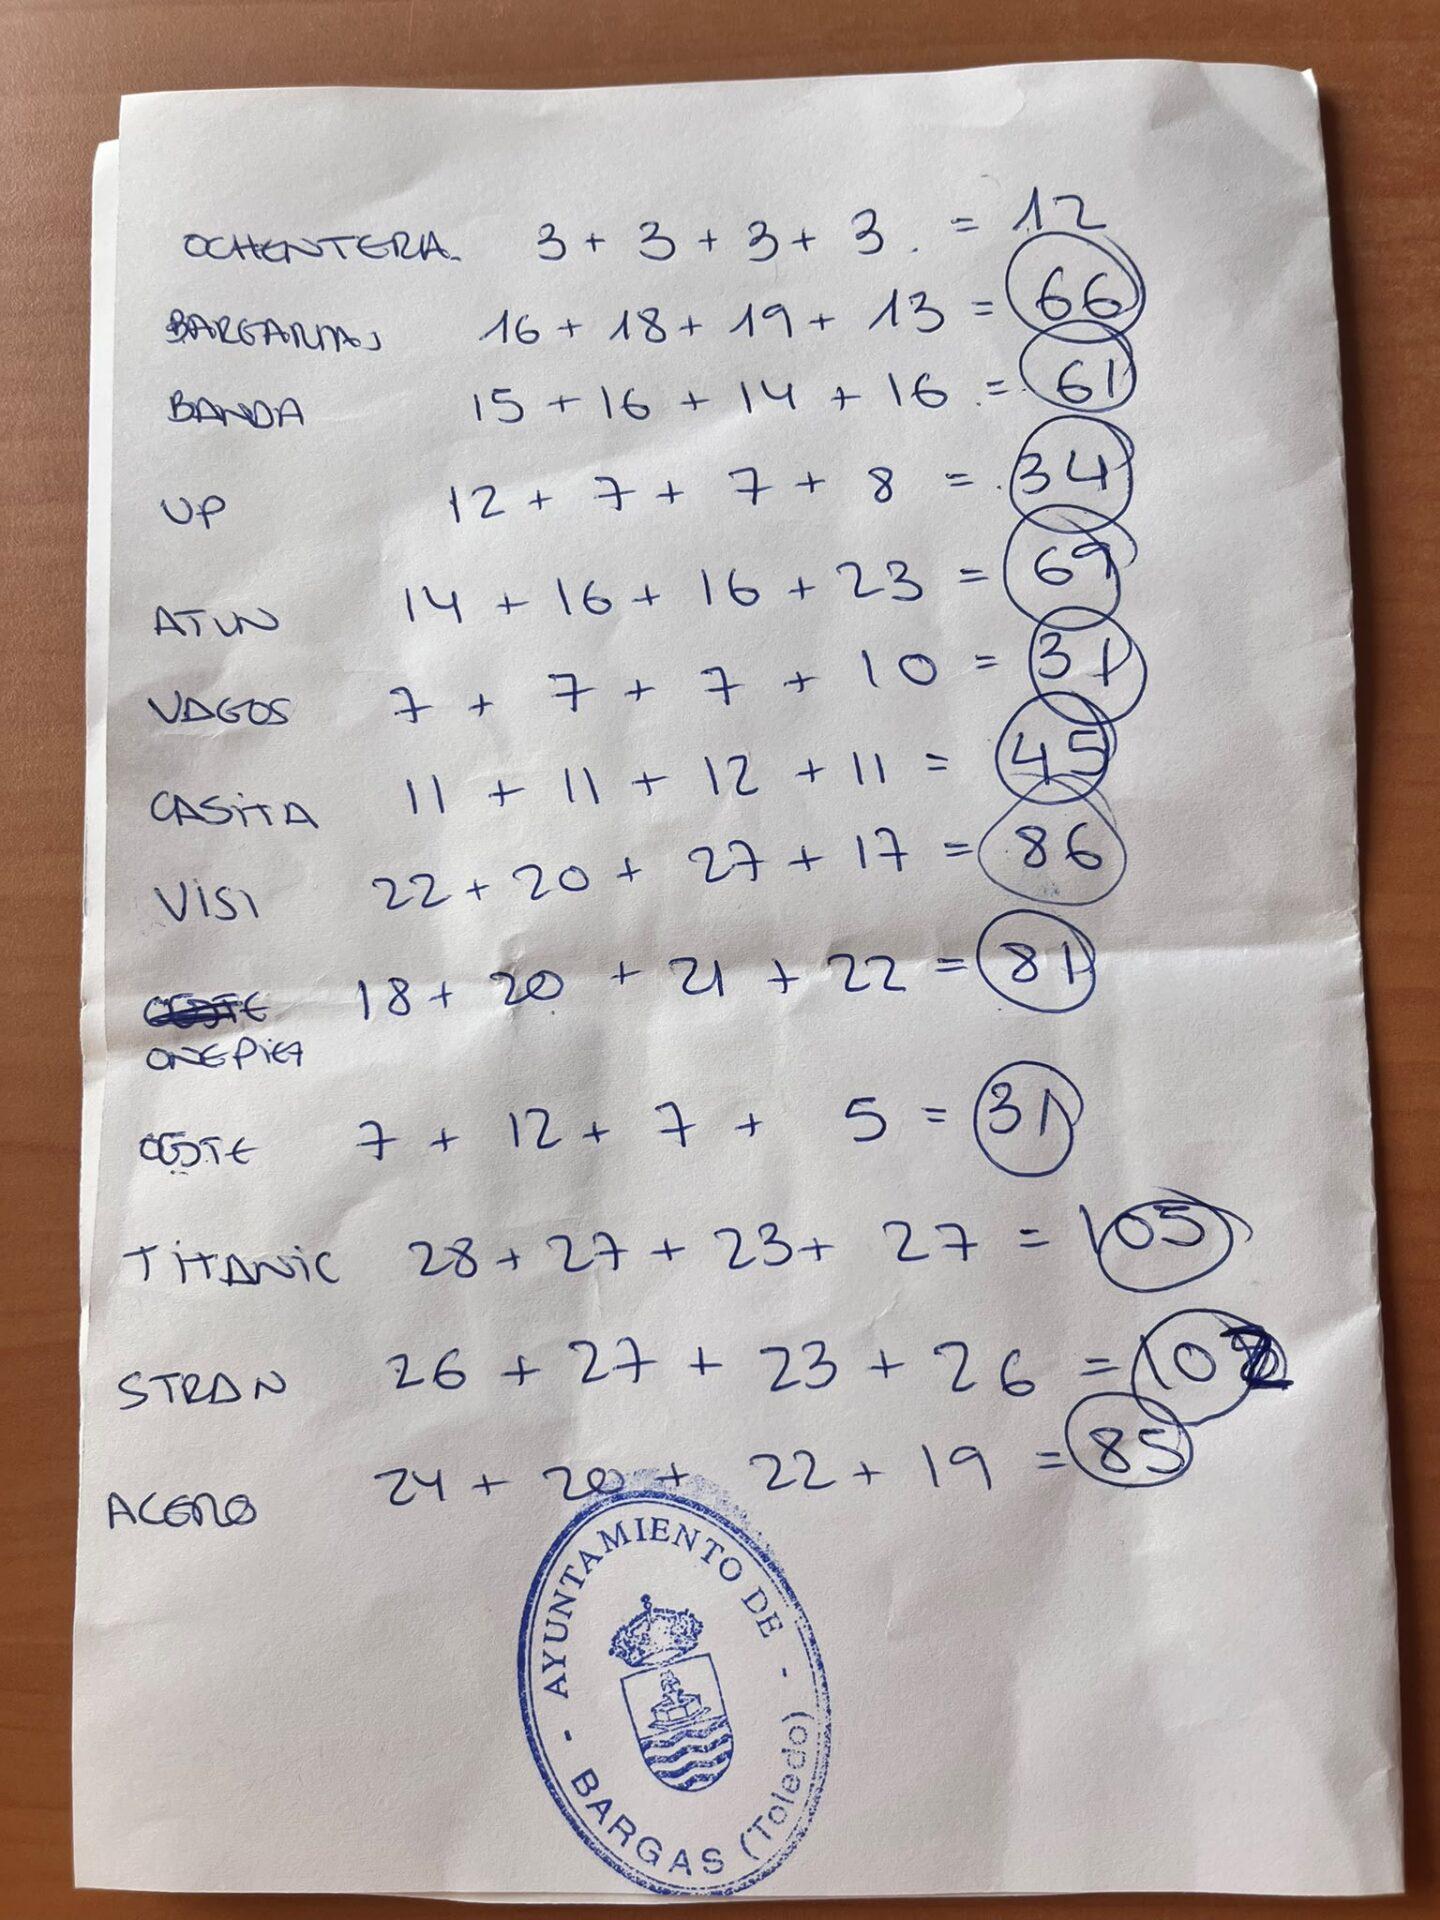 OCHENTERA. 3 + 3 + 3 + 3. = 12
BARGAÑAS 16 + 18 + 19 + 13 = 66
BANDA 15 + 16 + 14 + 16 = 61
UP 12 + 7 + 7 + 8 = 34
ATUN 14 + 16 + 16 + 23 = 69
VAGOS 7 + 7 + 7 + 10 = 31
CASITA 11 + 11 + 12 + 11 = 45
VISI 22 + 20 + 27 + 17 = 86
OESTE 18 + 20 + 21 + 22 = 81
ONE PIE
OESTE 7 + 12 + 7 + 5 = 31
TITANIC 28 + 27 + 23 + 27 = 105
STRAN 26 + 27 + 23 + 26 = 102
ACERO 24 + 20 + 22 + 19 = 85
- AYUNTAMIENTO DE -
BARGAS (Toledo)